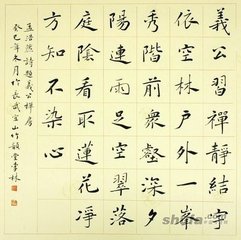 義公習禪靜結宇
依空林戶外一峯
秀階前衆壑深夕
陽連雨足空翠落
庭陰看取蓮花淨
方知不染心
孟浩然詩題義公禪房
癸巳年六月於